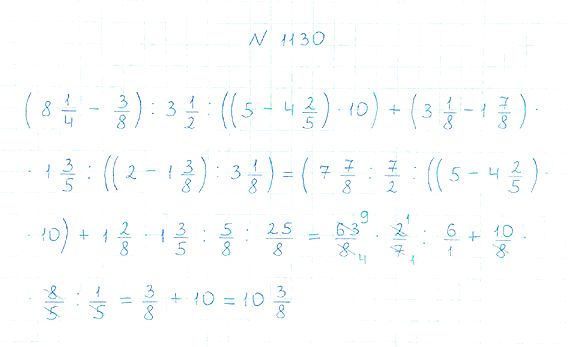 N 1130
(8 1/4 - 3/8) : 3 1/2 : ((5 - 4 2/5) · 10) + (3 1/8 - 1 7/8) ·
· 1 3/5 : ((2 - 1 3/8) : 3 1/8) = (7 7/8 : 7/2 : ((5 - 4 2/5) ·
· 10) + 1 2/8 · 1 3/5 : 5/8 : 25/8 = 63 9/8 4 · 2 1/7 1 : 6/1 + 10/8 ·
· 8/5 : 1/5 = 3/8 + 10 = 10 3/8